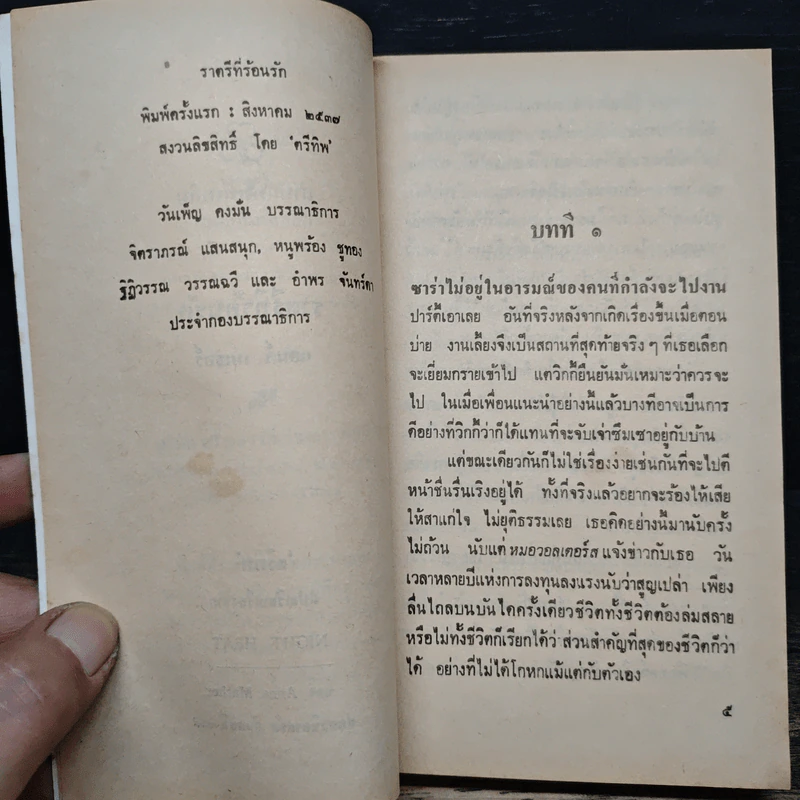 ราตรีที่ร้อนรัก
พิมพ์ครั้งแรก : สิงหาคม ๒๕๓๗
สงวนลิขสิทธิ์ โดย 'ตรีทิพ'
วันเพ็ญ คงมั่น บรรณาธิการ
จิตราภรณ์ แสนสนุก, หนูพร้อง ชูทอง
ฐิฏิวรรณ วรรณฉวี และ อำพร จันทร์ดา
ประจำกองบรรณาธิการ
NIGHT HEAT
บทที่ ๑
ซาร่าไม่อยู่ในอารมณ์ของคนที่กำลังจะไปงาน
ปาร์ตี้เอาเลย อันที่จริงหลังจากเกิดเรื่องขึ้นเมื่อตอน
บ่าย งานเลี้ยงจึงเป็นสถานที่สุดท้ายจริง ๆ ที่เธอเลือก
จะเยี่ยมกรายเข้าไป แต่วิกกี้ยืนยันมั่นเหมาะว่าควรจะ
ไป ในเมื่อเพื่อนแนะนำอย่างนี้แล้วบางทีอาจเป็นการ
ดีอย่างที่วิกกี้ว่าก็ได้แทนที่จะจับเจ่าซึมเซาอยู่กับบ้าน
แต่ขณะเดียวกันก็ไม่ใช่เรื่องง่ายเช่นกันที่จะไปตี
หน้าชื่นรื่นเริงอยู่ได้ ทั้งที่จริงแล้วอยากจะร้องไห้เสีย
ให้สาแก่ใจ ไม่ยุติธรรมเลย เธอคิดอย่างนี้มานับครั้ง
ไม่ถ้วน นับแต่ หมอวอลเตอร์ส แจ้งข่าวกับเธอ วัน
เวลาหลายปีแห่งการลงทุนลงแรงนับว่าสูญเปล่า เพียง
ลื่นไถลบนบันไดครั้งเดียวชีวิตทั้งชีวิตต้องล่มสลาย
หรือไม่ทั้งชีวิตก็เรียกได้ว่า ส่วนสำคัญที่สุดของชีวิตก็ว่า
ได้ อย่างที่ไม่ได้โกหกแม้แต่กับตัวเอง
๕